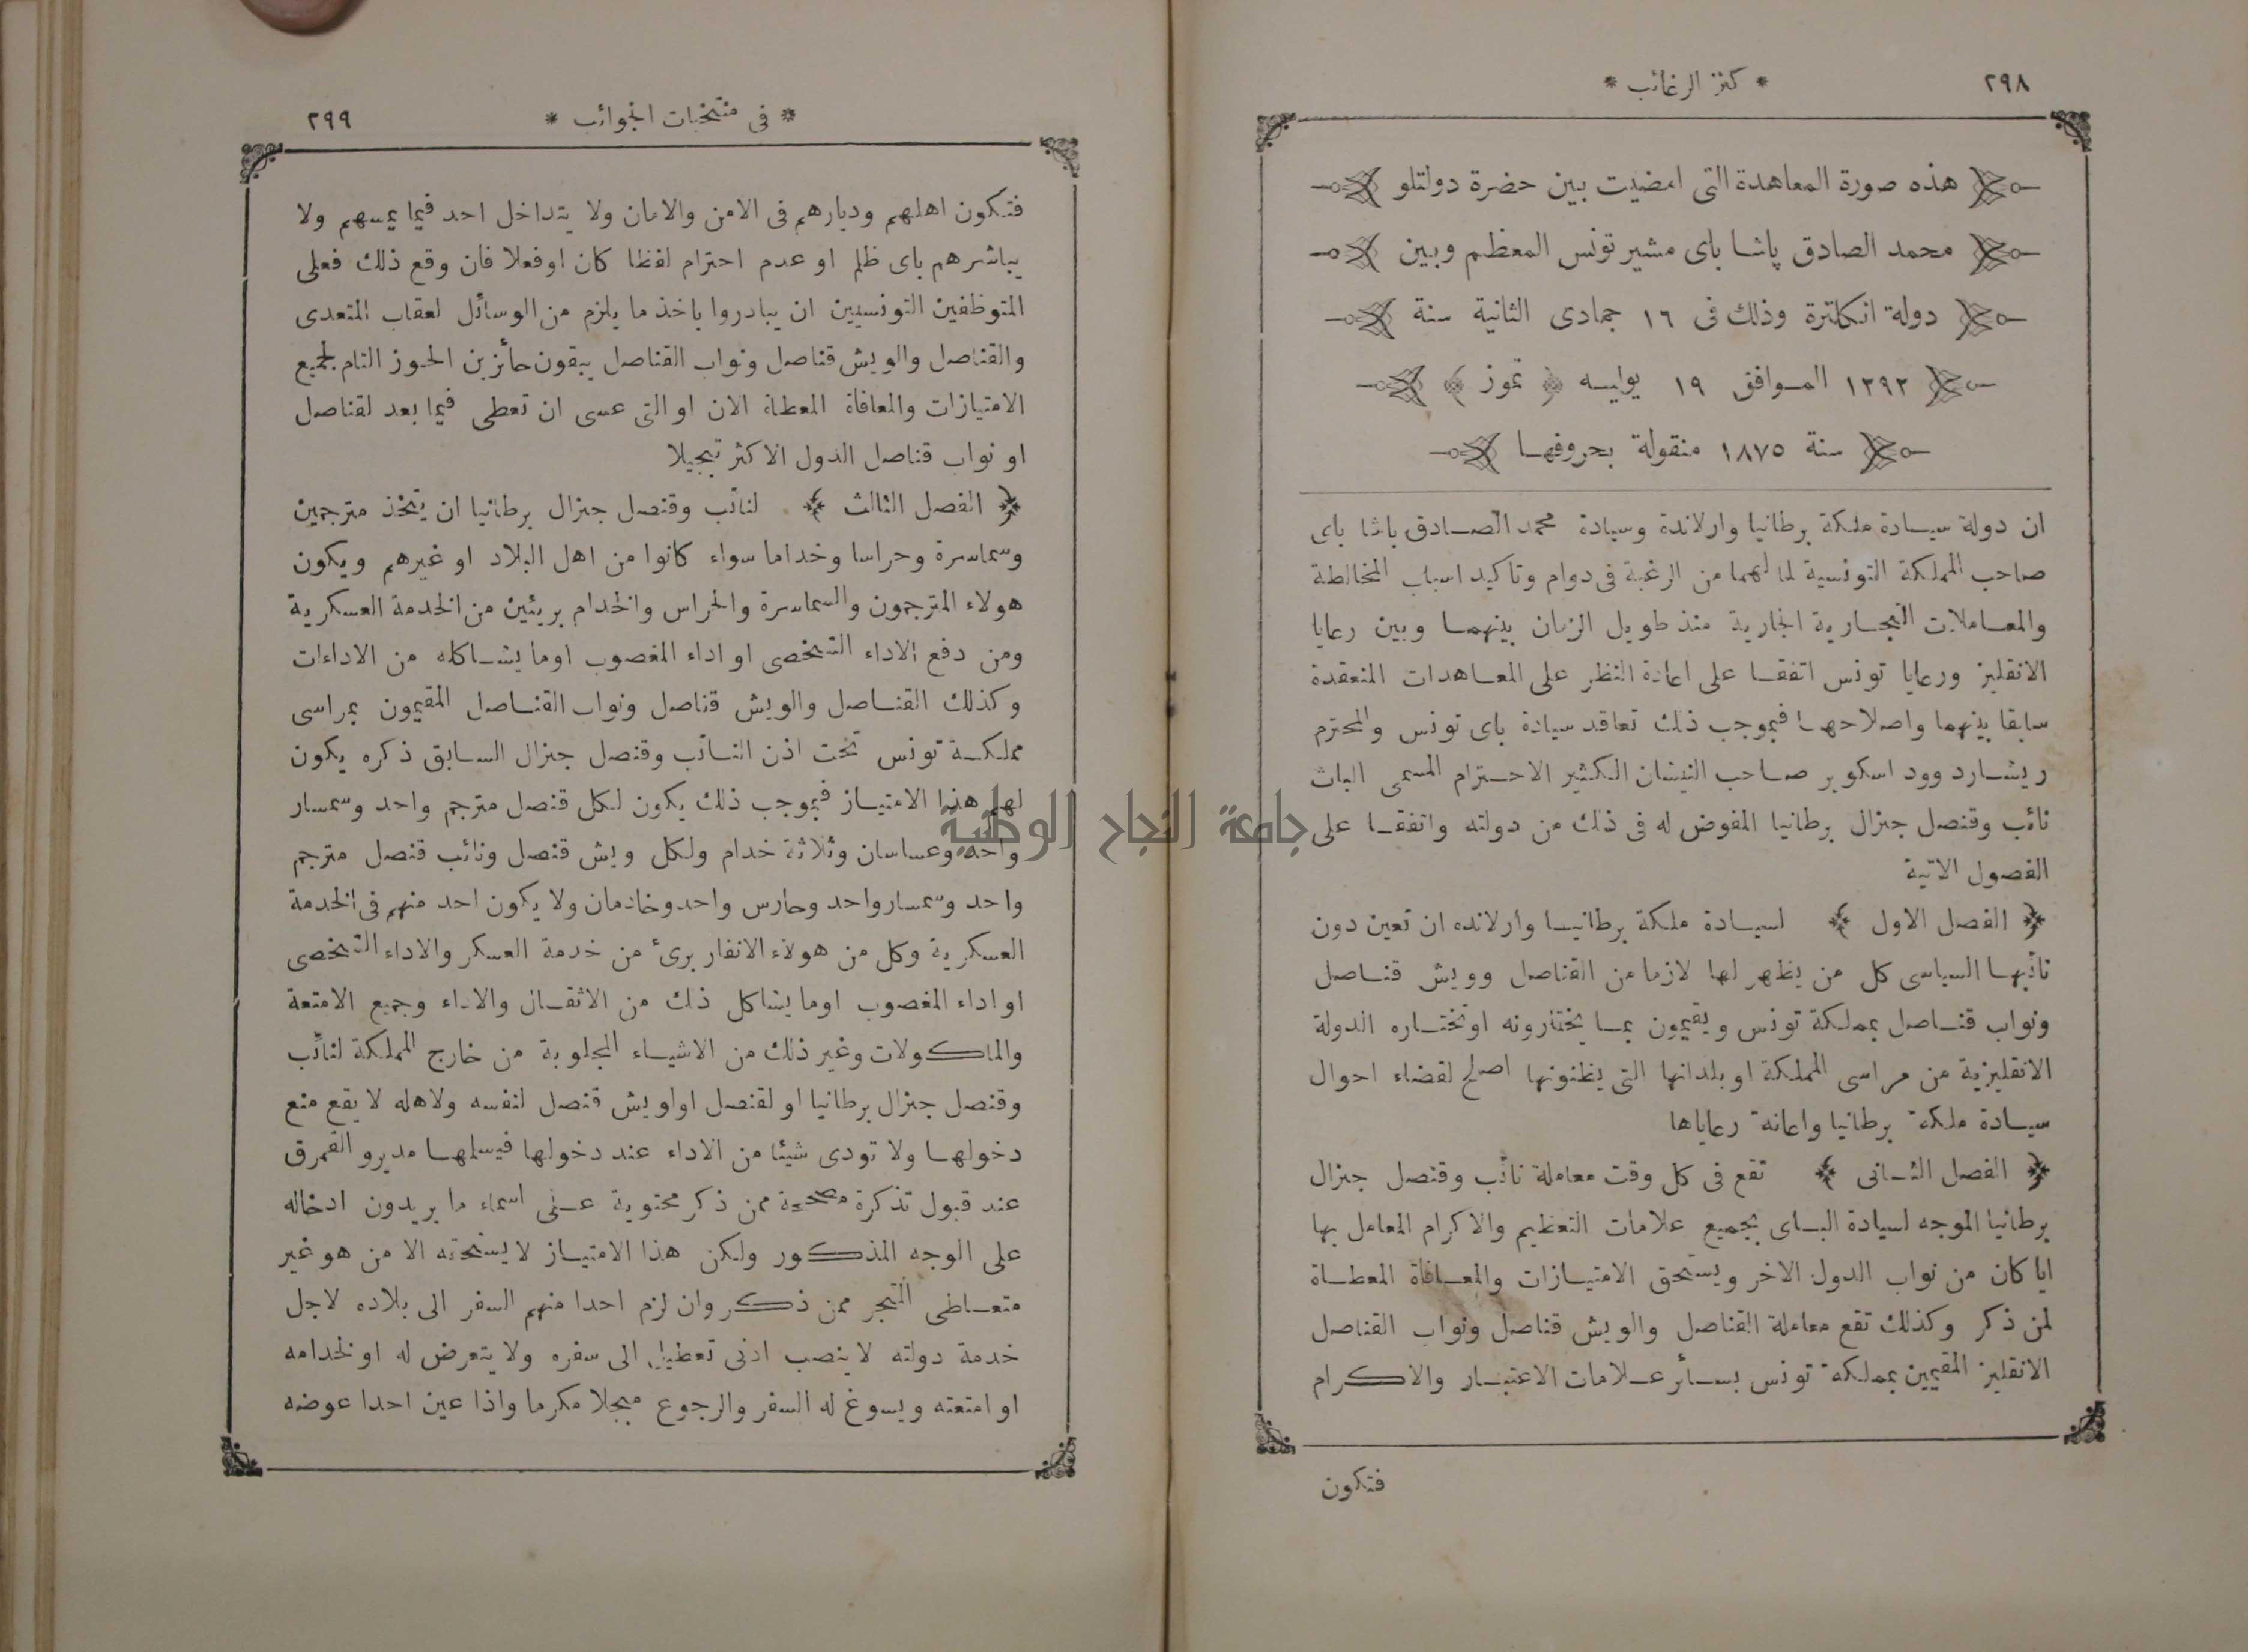 ٢٩٨
* كنز الرغائب *
هذه صورة المعاهدة التى امضيت بين حضرة دولتلو
محمد الصادق پاشا باى مشير تونس المعظم وبين
دولة انكلترة وذلك فى ١٦ جمادى الثانية سنة
١٢٩٢ المـوافق ١٩ يوليـه ﴿ تموز ﴾
سنة ١٨٧٥ منقولة بحروفهـا
ان دولة سيـادة ملكة برطانيا وارلاندة وسيادة محمد الصـادق باشا باى
صاحب المملكة التونسية لما لهما من الرغبة فى دوام وتاكيد اسباب المخالطة
والمعـاملات التجـارية الجارية منذ طويل الزمان بينهمـا وبين رعايا
الانقليز ورعايا تونس اتفقـا على اعادة النظر على المعـاهدات المنعقدة
سابقا بينهما واصلاحهـا فبموجب ذلك تعاقد سيادة باى تونس والمحترم
ريشـارد وود اسكوير صـاحب النيشان الكثير الاحـترام المسمى الباث
نائب وقنصل جنرال برطانيا المفوض له فى ذلك من دولته واتفقـا على
الفصول الاتية
﴿ الفصل الاول ﴾ لسيـادة ملكة برطانيـا وارلانده ان تعين دون
نائبهـا السياسى كل من يظهر لها لازما من القناصل وويش قنـاصل
ونواب قنـاصل بمملكة تونس ويقيمون بمـا يختارونه او تختـاره الدولة
الانقليزية من مراسى المملكة او بلدانها التى يظنونها اصلح لقضاء احوال
سيـادة ملكة برطانيا واعانة رعاياها
﴿ الفصل الثـانى ﴾ تقع فى كل وقت معاملة نائب وقنصل جنرال
برطانيا الموجه لسيادة البـاى بجميع علامات التعظيم والاكرام المعامل بها
ايا كان من نواب الدول الاخر ويستحق الامتيـازات والمعـافاة المعطـاة
لمن ذكر وكذلك تقع معاملة القناصل والويش قناصل ونواب القناصل
الانقليز المقيمين بمملكة تونس بسـائر عـلامات الاعتبـار والاكـرام
فتكون
* فى منتخبات الجوائب *
٢٩٩
فتكون اهلهم وديارهم فى الامن والامان ولا يتداخل احد فيما يمسهم ولا
يباشرهم باى ظلم او عدم احترام لفظا كان او فعلا فان وقع ذلك فعلى
المتوظفين التونسيين ان يبادروا باخذ ما يلزم من الوسائل لعقاب المتعدى
والقناصل والويش قناصل ونواب القناصل يبقون حائزين الحوز التام لجميع
الامتيازات والمعافاة المعطاة الان او التى عسى ان تعطى فيما بعد لقناصل
او نواب قناصل الدول الاكثر تبجيلا
﴿ الفصل الثالث ﴾ لنائب وقنصل جنرال برطانيا ان يتخذ مترجمين
وسماسرة وحراسا وخداما سواء كانوا من اهل البلاد او غيرهم ويكون
هولاء المترجمون والسماسرة والحراس والخدام بريئين من الخدمة العسكرية
ومن دفع الاداء الشخصى او اداء المغصوب او ما يشـاكله من الاداءات
وكذلك القنـاصل والويش قناصل ونواب القنـاصل المقيمون بمراسى
مملكـة تونس تحت اذن النـائب وقنصل جنرال السـابق ذكره يكون
لهم هذا الامتيـاز فبموجب ذلك يكون لكل قنصل مترجم واحد وسمسار
واحد وعساسان وثلاثة خدام ولكل ويش قنصل ونائب قنصل مترجم
واحد وسمسار واحد وحارس واحد وخادمان ولا يكون احد منهم فى الخدمة
العسكرية وكل من هولاء الانفار برئ من خدمة العسكر والاداء الشخصى
او اداء المغصوب او ما يشاكل ذلك من الاثقـال والاداء وجميع الامتعة
والماكـولات وغير ذلك من الاشيـاء المجلوبة من خارج المملكة لنائب
وقنصل جنرال برطانيا او لقنصل او لويش قنصل لنفسه ولاهله لا يقع منع
دخولهـا ولا تودى شيئا من الاداء عند دخولها فيسلمهـا مديرو القمرق
عند قبول تذكرة مصححة ممن ذكر محتوية عـلى اسماء ما يريدون ادخاله
على الوجه المذكـور ولكن هذا الامتيـاز لا يستحقه الا من هو غير
متعـاطى التجر ممن ذكـر وان لزم احدا منهم السفر الى بلاده لاجل
خدمة دولته لا ينصب ادنى تعطيل الى سفره ولا يتعرض له او لخدامه
او امتعته ويسوغ له السفر والرجوع مبجلا مكرما واذا عين احدا عوضه
جامعة النجاح الوطنية